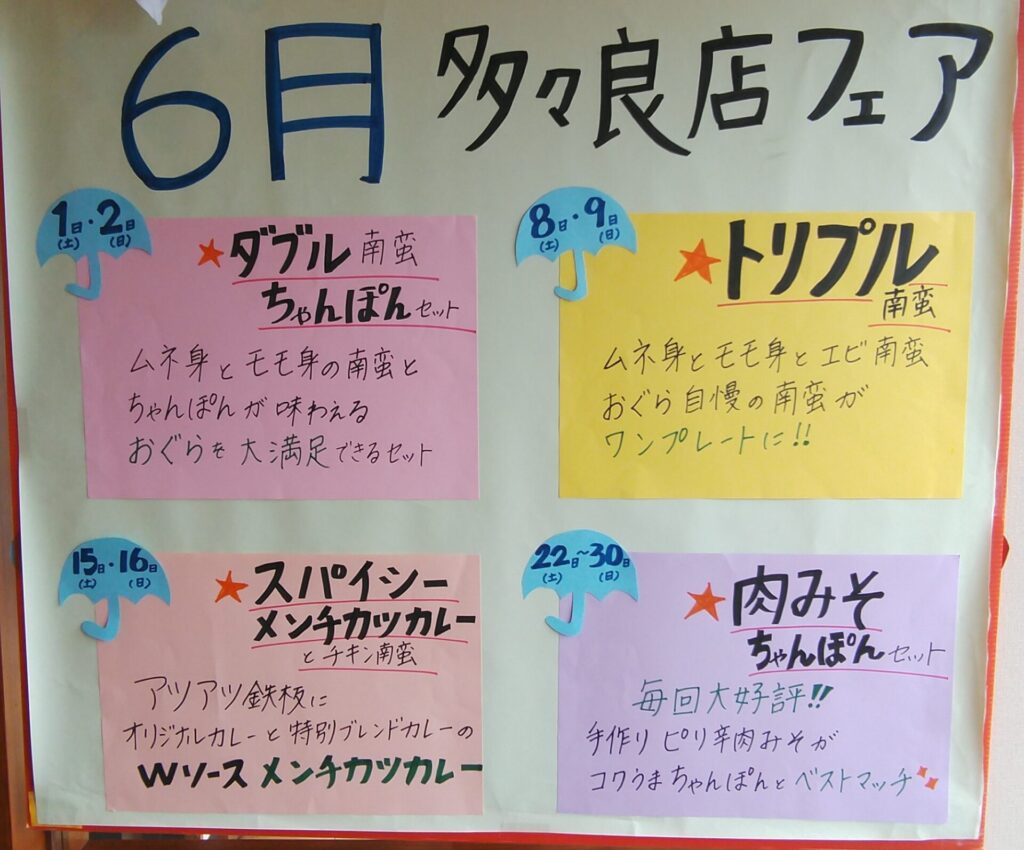 6月 多々良店フェア
1日・2日
(土) (日)
★ダブル南蛮
ちゃんぽんセット
ムネ身とモモ身の南蛮と
ちゃんぽんが味わえる
おぐらを大満足できるセット
8日・9日
(土) (日)
★トリプル
南蛮
ムネ身とモモ身とエビ南蛮
おぐら自慢の南蛮が
ワンプレートに!!
15日・16日
(土) (日)
★スパイシー
メンチカツカレー
とチキン南蛮
アツアツ鉄板に
オリジナルカレーと特別ブレンドカレーの
Wソースメンチカツカレー
22日~30日
(土) (日)
★肉みそ
ちゃんぽんセット
毎回大好評!!
手作りピリ辛肉みそが
コクうまちゃんぽんとベストマッチ